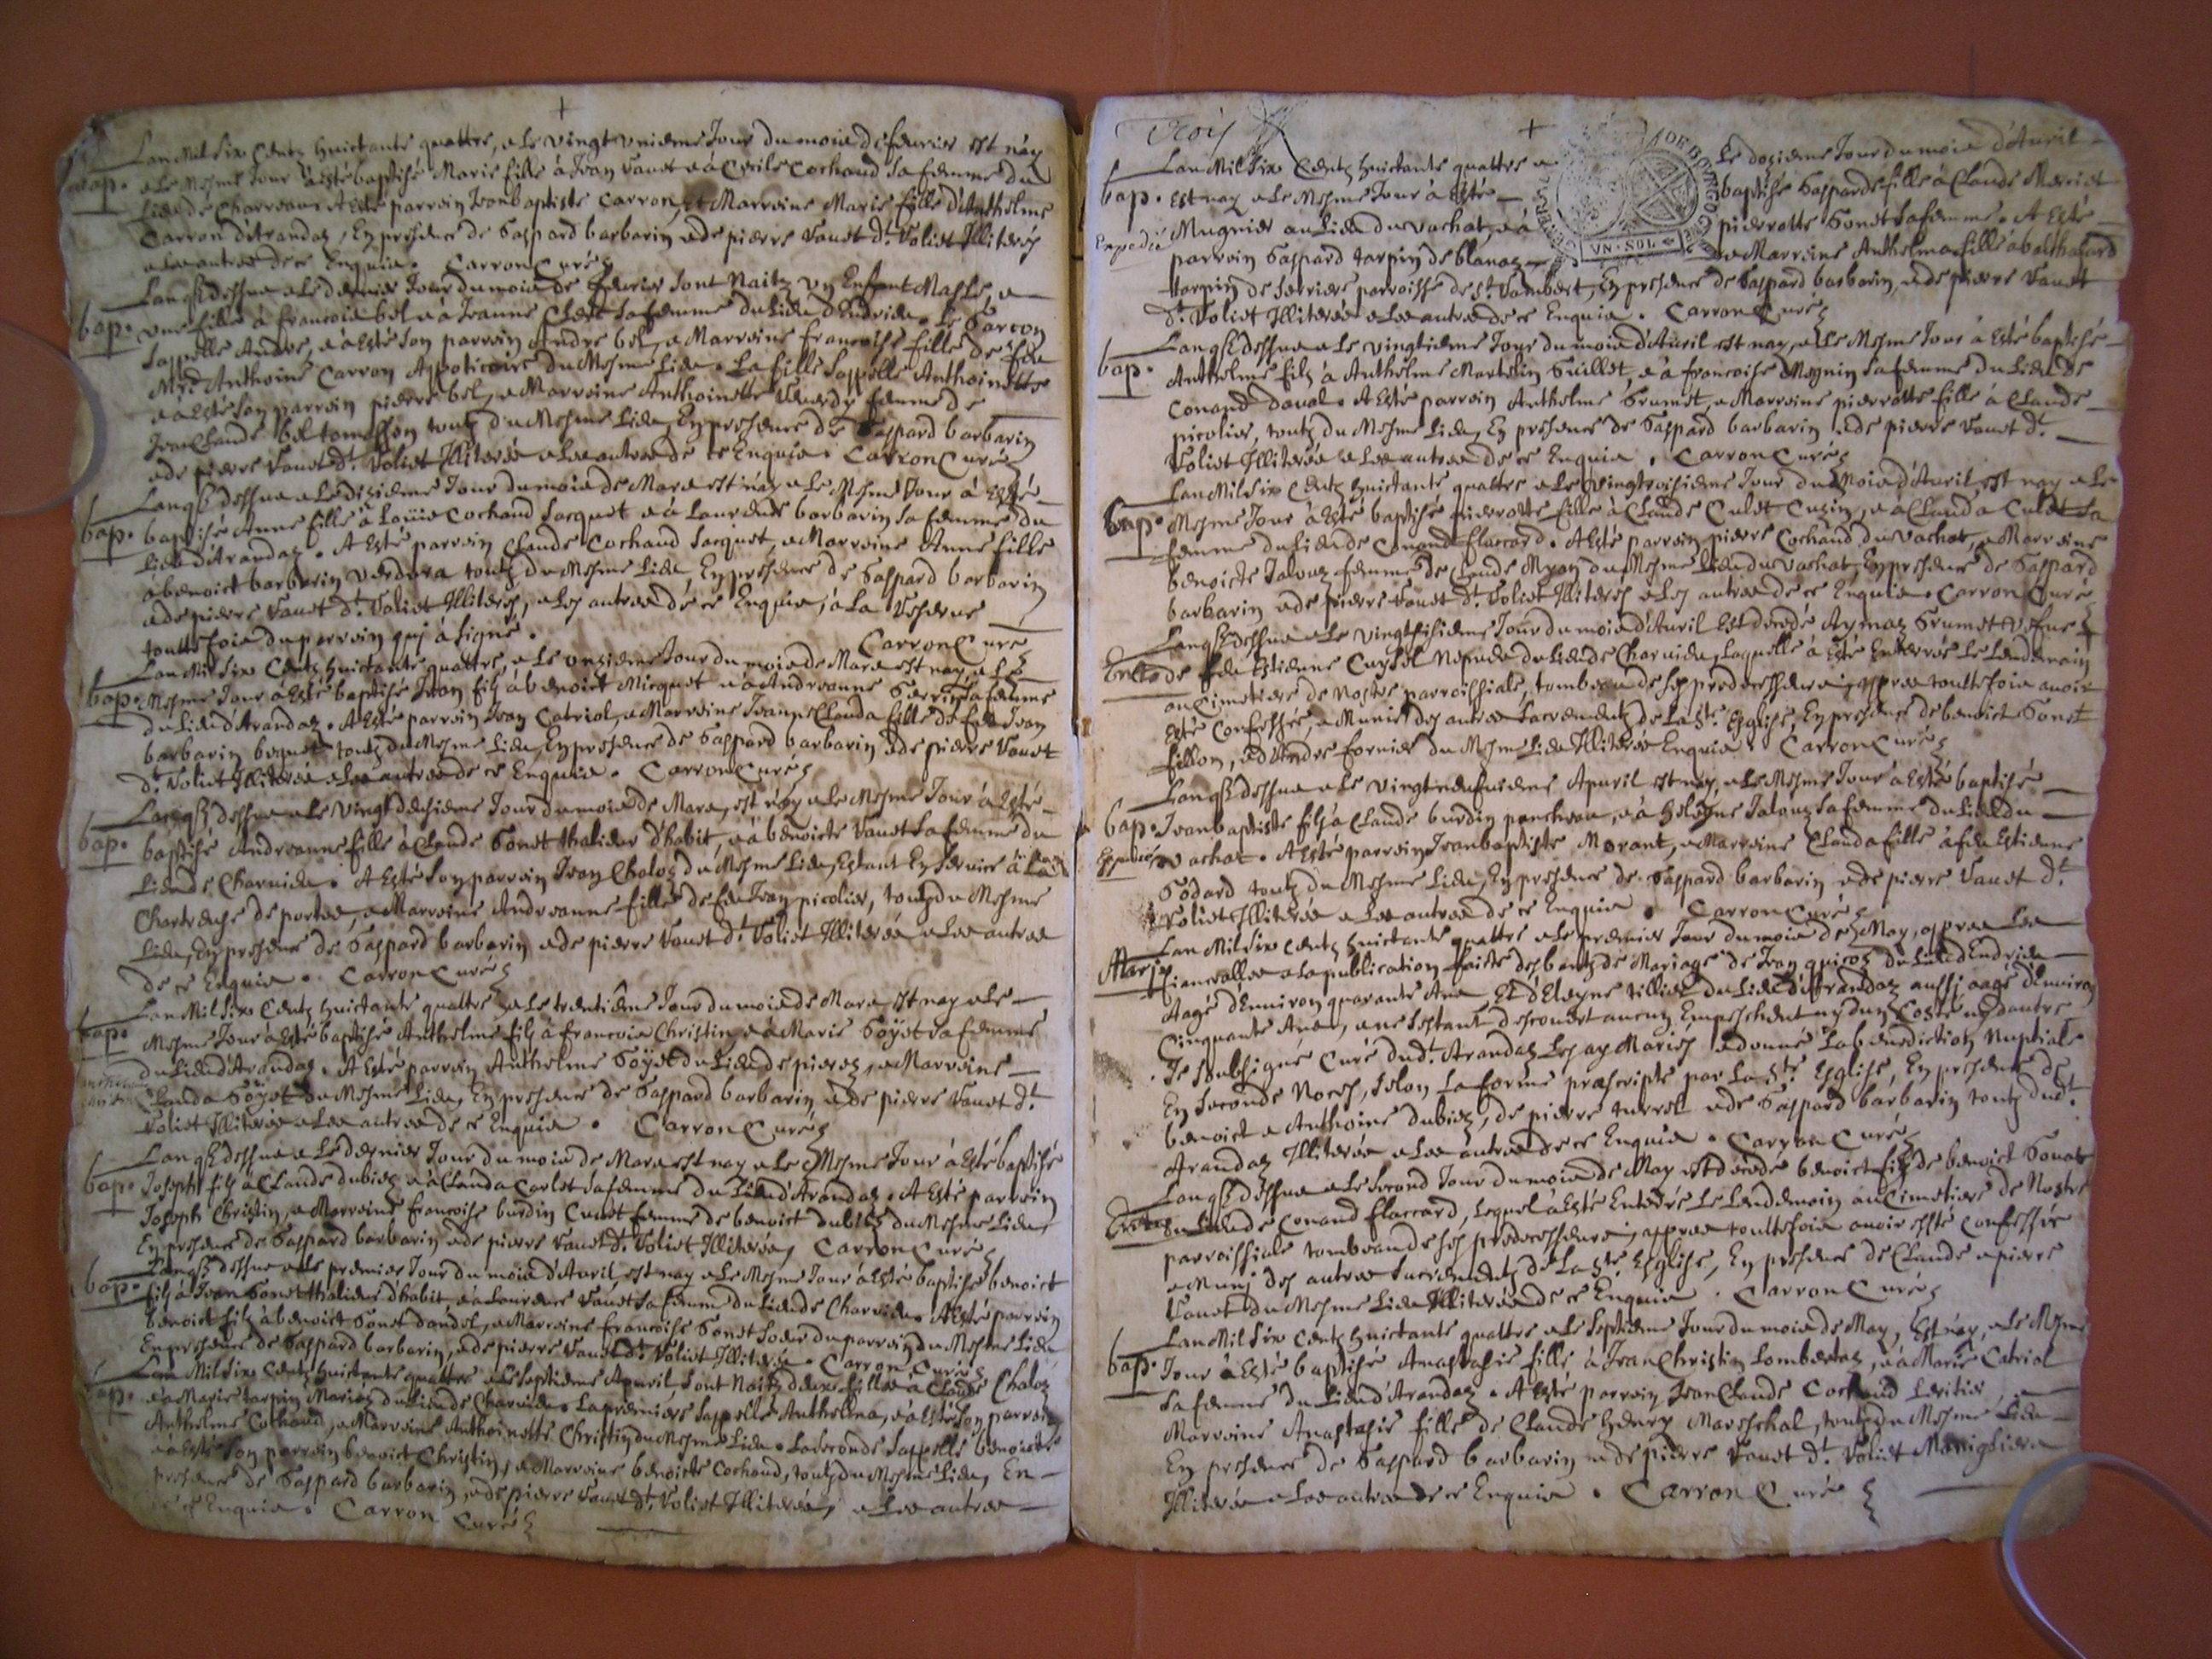 +
Lan Mil Six Centz huictante quattre, e le vingt unieme Jour du mois de feburier est nay
bap. e le Mesme Jour à esté baptisé Marie fille à Jean Vauet e à Cecile Cochaud sa femme du
Lieu de Charveau. A esté parrein Jeanbaptiste Carron, et Marreine Marie fille d'Anthelme
Carron d'Arandaz, En presence de Gaspard barbarin e de pierre Vauet dt. Voliet Illiterés
e les autres de ce Enquis. Carron Curé
Lanqs dessus e le dernier Jour du mois de feurier sont Naitz un Enfant Masle, e
bap. une fille à francois bel e à Jeanne sa femme du Lieu d'Indrieu. Le Garcon
sappelle André, e à esté son parrein André bel, e Marreine francoise fille de feu
Anthoine Carron Appoticaire du Mesme Lieu. La fille sappelle Anthoinette
e à esté son parrein pierre bel, e Marreine Anthoinette femme de
Jean Claude bel tomasson toutz du Mesme Lieu, En presence de Gaspard barbarin
e de pierre Vauet dt. Voliet Illiterés e les autres de ce Enquis. Carron Curé
Lanqs dessus e le dizieme Jour du mois de Mars est nay e le Mesme Jour à esté
bap. baptisé Anne fille à Louis Cochaud Jacquet e à Laurence barbarin sa femme du
Lieu d'Arandaz. A esté parrein Claude Cochaud Jacquet, e Marreine Anne fille
à benoict barbarin Verdura toutz du Mesme Lieu, En presence de Gaspard barbarin
e de pierre Vauet dt. Voliet Illiterés, e les autres de ce Enquis, à la reserve
touttefois du parrein qui à signé. Carron Curé
Lan Mil Six Centz huictante quattre, e le unzieme Jour du mois de Mars est nay, e le
bap. Mesme Jour à esté baptisé Jean filz à benoict Micquet e à Andreanne sa femme
du Lieu d'Arandaz. A esté parrein Jean Catriol, e Marreine Jeanne Clauda fille de feu Jean
barbarin toutz du Mesme Lieu, En presence de Gaspard barbarin e de pierre Vauet
dt. Voliet Illiterés e les autres de ce Enquis. Carron Curé
Lanqs dessus e le vingt deusieme Jour du mois de Mars, est nay e le Mesme Jour à esté
bap. baptisé Andreanne fille à Claude Sonet thalieur d'habit, e à benoicte Vauet sa femme du
Lieu de Charvieu. A esté son parrein Jean Chaloz du Mesme Lieu, Estant En service à la
Chartreuse de portes, e Marreine Andreanne fille de feu Jean picolier, toutz du Mesme
Lieu, En presence de Gaspard barbarin e de pierre Vauet dt. Voliet Illiterés e les autres
de ce Enquis. Carron Curé
Lan Mil Six Centz huictante quattre e le trentieme Jour du mois de Mars est nay e le
bap. Mesme Jour à esté baptisé Anthelme filz à francois Christin, e à Marie Goyet sa femme
du Lieu d'Arandaz. A esté parrein Anthelme Goyet du Lieu de , e Marreine
Clauda Goyet du Mesme Lieu, En presence de Gaspard barbarin e de pierre Vauet dt.
Voliet Illiterés e les autres de ce Enquis. Carron Curé
Lanqs dessus e le dernier Jour du mois de Mars est nay e le Mesme Jour à esté baptisé
bap. Joseph filz à Claude dubiez e à Clauda Carlet sa femme du Lieu d'Arandaz. A esté parrein
Joseph Christin, e Marreine francoise burdin Cuaet femme de benoict dubiez du Mesme Lieu,
En presence de Gaspard barbarin e de pierre Vauet dt. Voliet Illiterés, Carron Curé
Lanqs dessus e le premier Jour du mois d'Avril est nay e le Mesme Jour à esté baptisé benoict
bap. filz à Jean Sonet thalieur d'habit, e à Laurence Vauet sa femme du Lieu de Charvieu. A esté parrein
benoict filz à benoict Sonet , e Marreine francoise Sonet soeur du parrein du Mesme Lieu
En presence de Gaspard barbarin, e de pierre Vauet dt. Voliet Illiterés. Carron Curé
Lan Mil Six Centz huictante quattre e le septieme Apvril sont Naitz deux filles à Claude Chaloz
bap. e à Marie tarpin Mariez du Lieu de Charvieu. La premiere sappelle Anthelma, e à esté son parrein
Anthelme Cochaud, e Marreine Anthoinette Christin du Mesme Lieu. La seconde sappelle benoicte
e à esté son parrein benoict Christin, e Marreine benoicte Cochaud, toutz du Mesme Lieu, En
presence de Gaspard barbarin, e de pierre Vauet dt. Voliet Illiterés, e les autres
de ce Enquis. Carron Curé
Trois
+
Lan Mil Six Centz huictante quattre e Le dozieme Jour du mois d'Avril
bap. est nay e le Mesme Jour à esté baptisé Gasparde fille à Claude Mercier
Expedié Mugnier au Lieu du Vachat, e à pierrotte Sonet sa femme. A esté
UN·SOL
parrein Gaspard tarpin de blanaz e Marreine Anthelma fille à balthazard
tarpin de serriere parroisse de St. Rambert, En presence de Gaspard barbarin, e de pierre Vauet
dt. Voliet Illiterés e les autres de ce Enquis. Carron Curé
Lanqs dessus e le vingtieme Jour du mois d'Avril est nay, e le Mesme Jour à esté baptisé
bap. Anthelme filz à Anthelme Martelin Guillet, e à francoise Meynin sa femme du Lieu de
Conand daval. A esté parrein Anthelme Grumet, e Marreine pierrotte fille à Claude
picolier, toutz du Mesme Lieu, En presence de Gaspard barbarin e de pierre Vauet dt.
Voliet Illiterés e les autres de ce Enquis. Carron Curé
Lan Mil Six Centz huictante quattre e le vingtroisieme Jour du Mois d'Avril est nay e le
bap. Mesme Jour à esté baptisé pierrotte fille à Claude Culet Cuzin, e à Clauda Culet sa
femme du Lieu de Conand flaccard. A esté parrein pierre Cochaud du Vachat, e Marreine
benoicte Jalouz femme de Claude Myon du Mesme Lieu du Vachat, En presence de Gaspard
barbarin e de pierre Vauet dt. Voliet Illiterés e les autres de ce Enquis. Carron Curé
Lanqs dessus e le vingt sisieme Jour du mois d'Avril est decedé Aymaz Grumet vefue
de feu Estienne Cuysel du Lieu de Charvieu, Laquelle à esté Enterrée le Lendemain
au Cimetiere de Nostre parroissiale, tombeau de ses predecesseurs, appres touttefois avoir
esté Confessée, e Munie des autres Sacrementz de la Ste. Esglise, En presence de benoict Sonet
fillion, e d'André fornier du Mesme Lieu Illiterés Enquis. Carron Curé
Lanqs dessus e le vingt neufuieme Apvril est nay, e le Mesme Jour à esté baptisé
bap. Jeanbaptiste filz à Claude burdin pancheau, e à Jalouz sa femme du Lieu du
Expedié Vachat. A esté parrein Jeanbaptiste Morant, e Marreine Clauda fille à feu Estienne
Godard toutz du Mesme Lieu, En presence de Gaspard barbarin e de pierre Vauet dt.
Voliet Illiterés e les autres de ce Enquis. Carron Curé
Lan Mil Six Centz huictante quattre e le premier Jour du mois de May, appres les
Mariz fiancailles e la publication faicte des bantz de Mariage de Jean quicoz du Lieu d'Endrieu
Aagé d'Environ quarante Ans Et d'Eleyne tillier du Lieu d'Arandaz aussi aagé d'Environ
Cinquante Ans, e ne s'estant descouvert aucun Empeschement ny d'un Costé ny d'autre
Je soubsigné Curé dudt. Arandaz Les ay Mariés e donné La benediction Nuptiale
En seconde Noces, selon La forme prescripte par La Ste Esglise, En presence de
benoict e Anthoine dubiez, de pierre turrel e de Gaspard barbarin toutz dudt.
Arandaz Illiterés e les autres de ce Enquis. Carron Curé
Lanqs dessus e le second Jour du mois de May est decedé benoict filz de benoict Sonet
du Lieu de Conand flaccard, Lequel à esté Enterré le Lendemain au Cimetiere de Nostre
parroissiale tombeau de ses predecesseurs, appres touttefois avoir esté confessée
e Muny des autres Sacrementz de la Ste. Esglise, En presence de Claude e pierre
Vauet du Mesme Lieu Illiterés de ce Enquis. Carron Curé
Lan Mil Six Centz huictante quattre e le septieme Jour du mois de May, Est nay, e le Mesme
bap. Jour à esté baptisé Anastasie fille à Jean Christin Lombertaz, e à Marie Catriol
sa femme du Lieu d'Arandaz. A esté parrein Jean Claude Cochaud Leritier,
Marreine Anastasie fille de Claude henry Mareschal, toutz du Mesme Lieu
En presence de Gaspard barbarin e de pierre Vauet dt. Voliet Manigliers
Illiterés e les autres de ce Enquis. Carron Curé